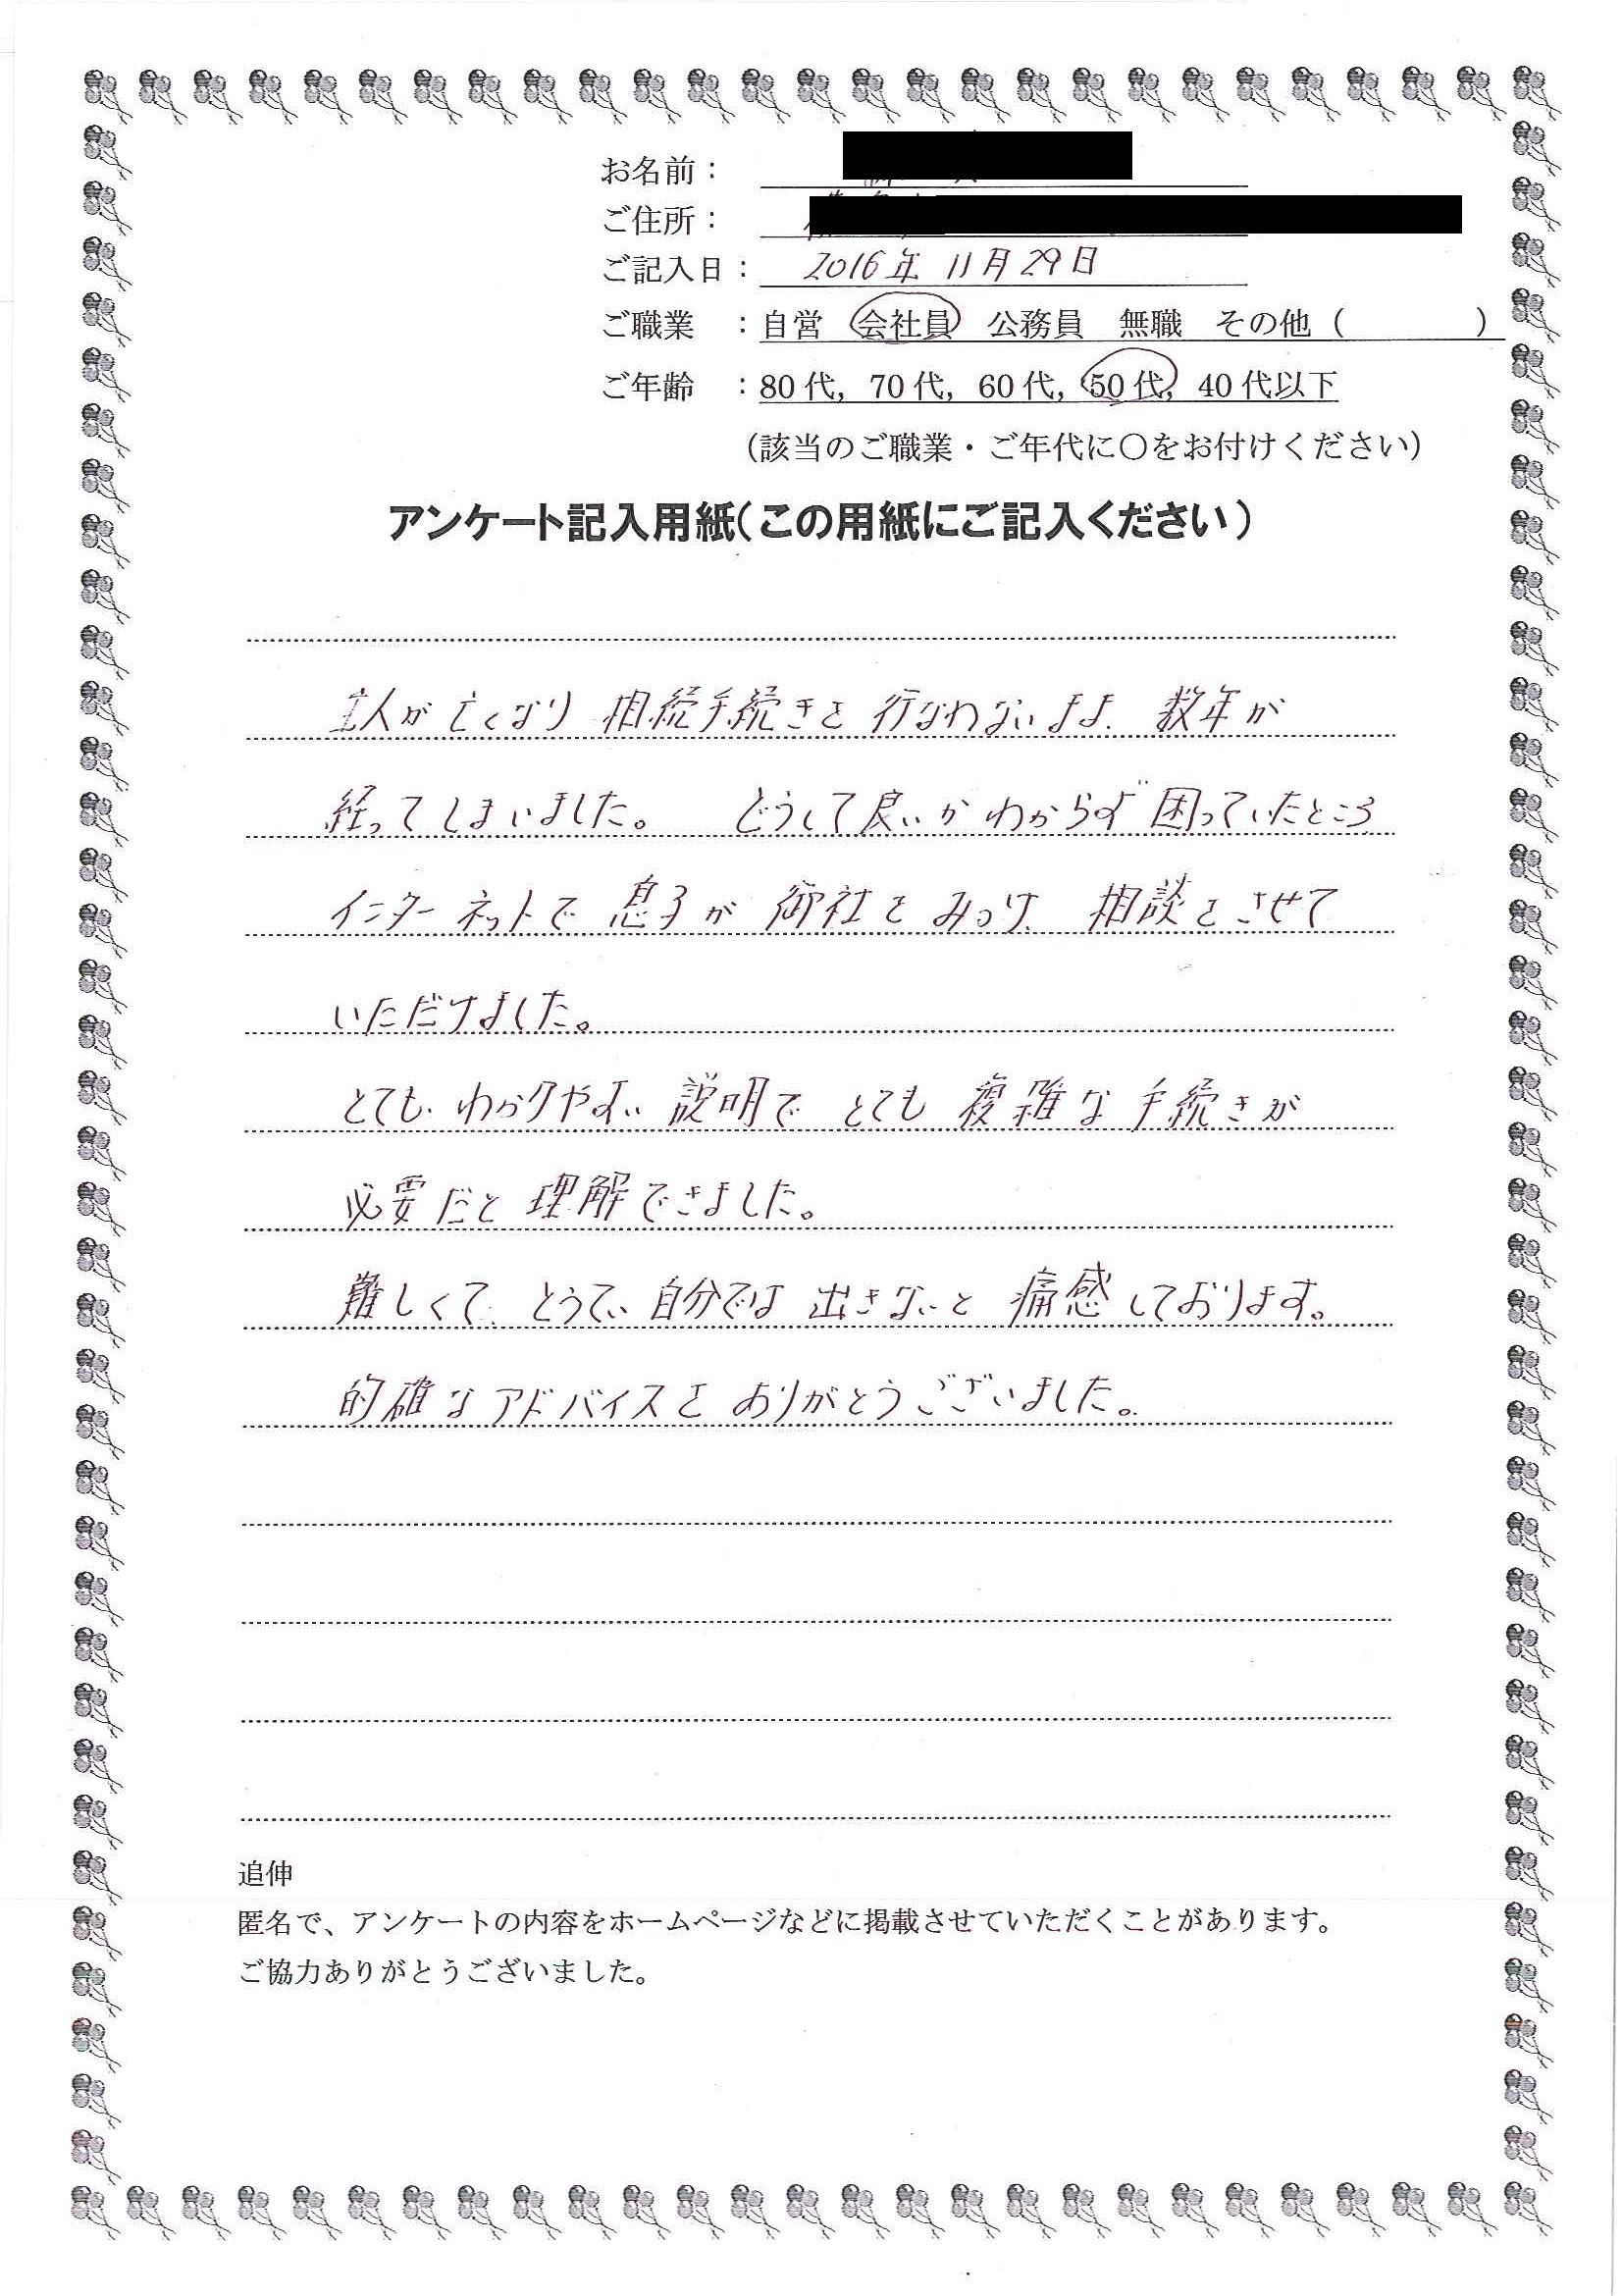 お名前：
ご住所：
ご記入日： 2016年 11月29日
ご職業 ：自営 会社員 公務員 無職 その他（ ）
ご年齢 ：80代，70代，60代，50代，40代以下
（該当のご職業・ご年代に〇をお付けください）
アンケート記入用紙（この用紙にご記入ください）
主人が亡くなり 相続手続きを 行なわないまま、数年が
経ってしまいました。 どうして良いか わからず 困っていたところ
インターネットで 息子が 御社を みつけ、相談を させて
いただけました。
とても わかりやすい 説明で とても 複雑な 手続きが
必要だと 理解できました。
難しくて、とうてい 自分では 出きないと 痛感しております。
的確なアドバイスを ありがとうございました。
追伸
匿名で、アンケートの内容をホームページなどに掲載させていただくことがあります。
ご協力ありがとうございました。